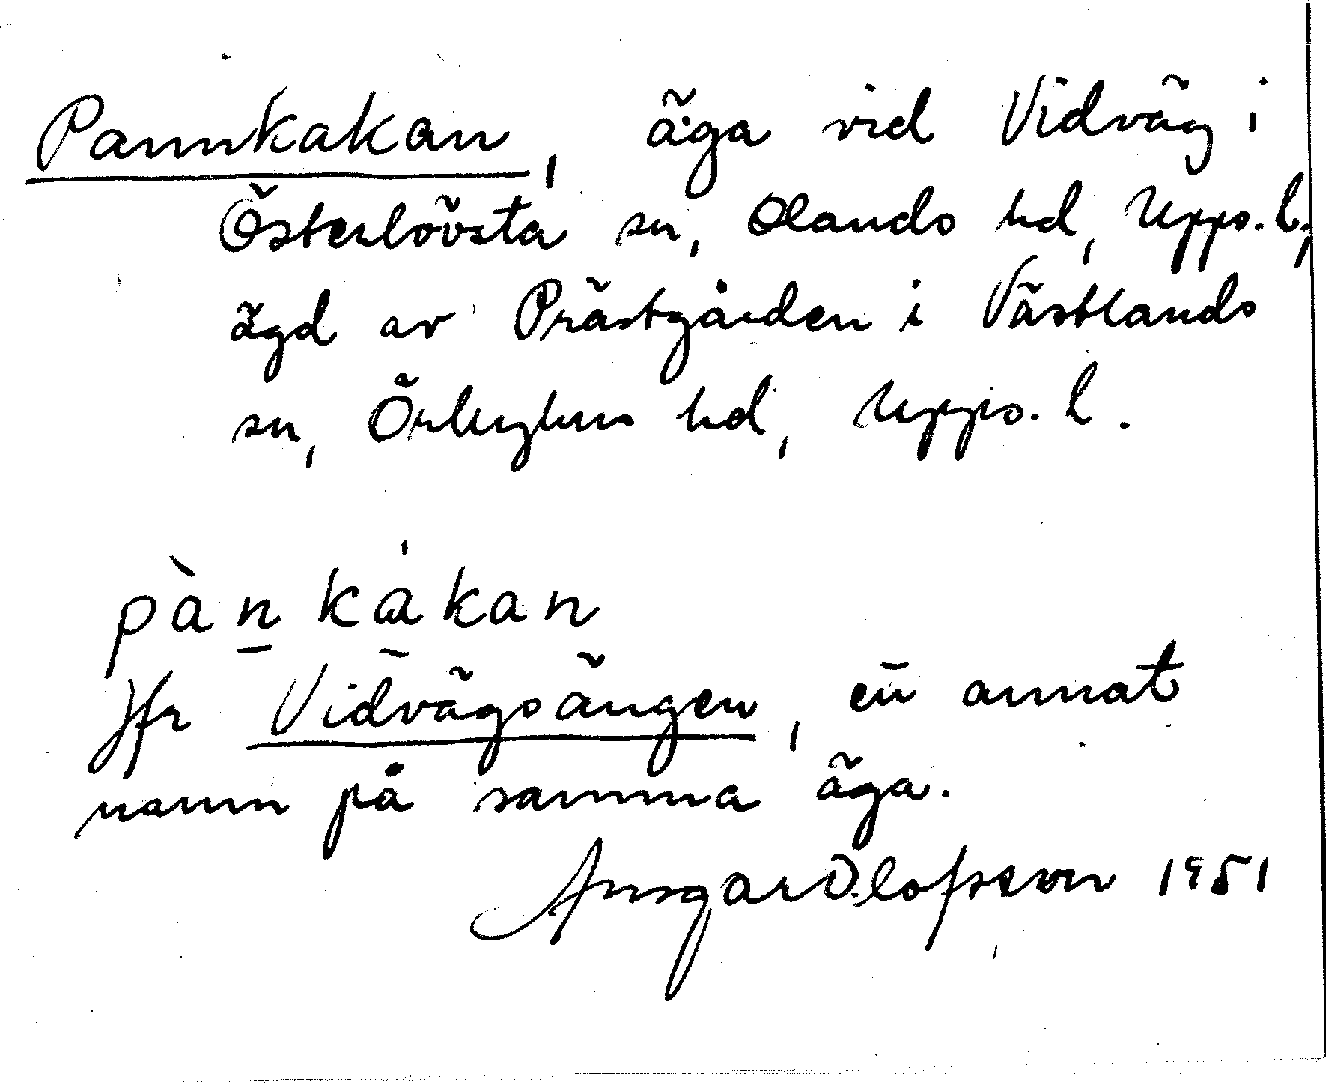 Pannkakan, äga vid Vidväg i
Österlövsta sn, Olands hd, Upps. l.,
ägd av Prästgården i Västlands
sn, Örbyhus hd, Upps. l.
pàn kákan
Jfr Vidvägsängen, en̄ annat
namn på samma äga.
Ansgar Olofsson 1951